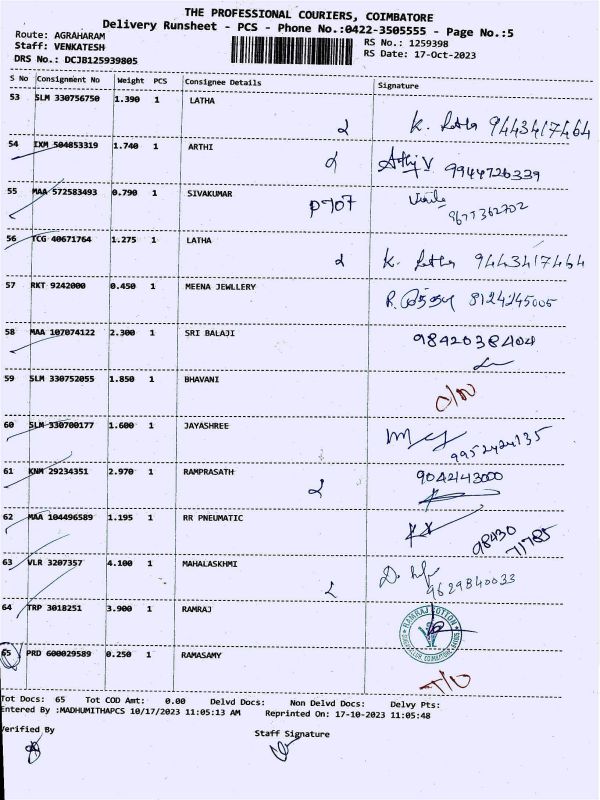 THE PROFESSIONAL COURIERS, COIMBATORE
Delivery Runsheet - PCS - Phone No.:0422-3505555 - Page No.:5
Route: AGRAHARAM
RS No.: 1259398
Staff: VENKATESH
RS Date: 17-Oct-2023
DRS No.: DCJB125939805
S No Consignment No Weight PCS Consignee Details Signature
53 SLM 330756750 1.390 1 LATHA K. Latha 9443417464
54 IXM 504853319 1.740 1 ARTHI Arthi V 9944726339
55 MAA 572583493 0.790 1 SIVAKUMAR P707 9677362702
56 TCG 40671764 1.275 1 LATHA K. Latha 9443417464
57 RKT 9242000 0.450 1 MEENA JEWLLERY 8124245005
58 MAA 107074122 2.300 1 SRI BALAJI 9842038404
59 SLM 330752055 1.850 1 BHAVANI
60 SLM 330700177 1.600 1 JAYASHREE 9952424135
61 KNM 29234351 2.970 1 RAMPRASATH 9042243000
62 MAA 104496589 1.195 1 RR PNEUMATIC 98430
71785
63 VLR 3207357 4.100 1 MAHALASKHMI 9629840033
64 TRP 3018251 3.900 1 RAMRAJ RAMRAJ COTTON
65 PRD 600029589 0.250 1 RAMASAMY
Tot Docs: 65 Tot COD Amt: 0.00 Delvd Docs: Non Delvd Docs: Delvy Pts:
Entered By :MADHUMITHAPCS 10/17/2023 11:05:13 AM Reprinted On: 17-10-2023 11:05:48
Verified By Staff Signature